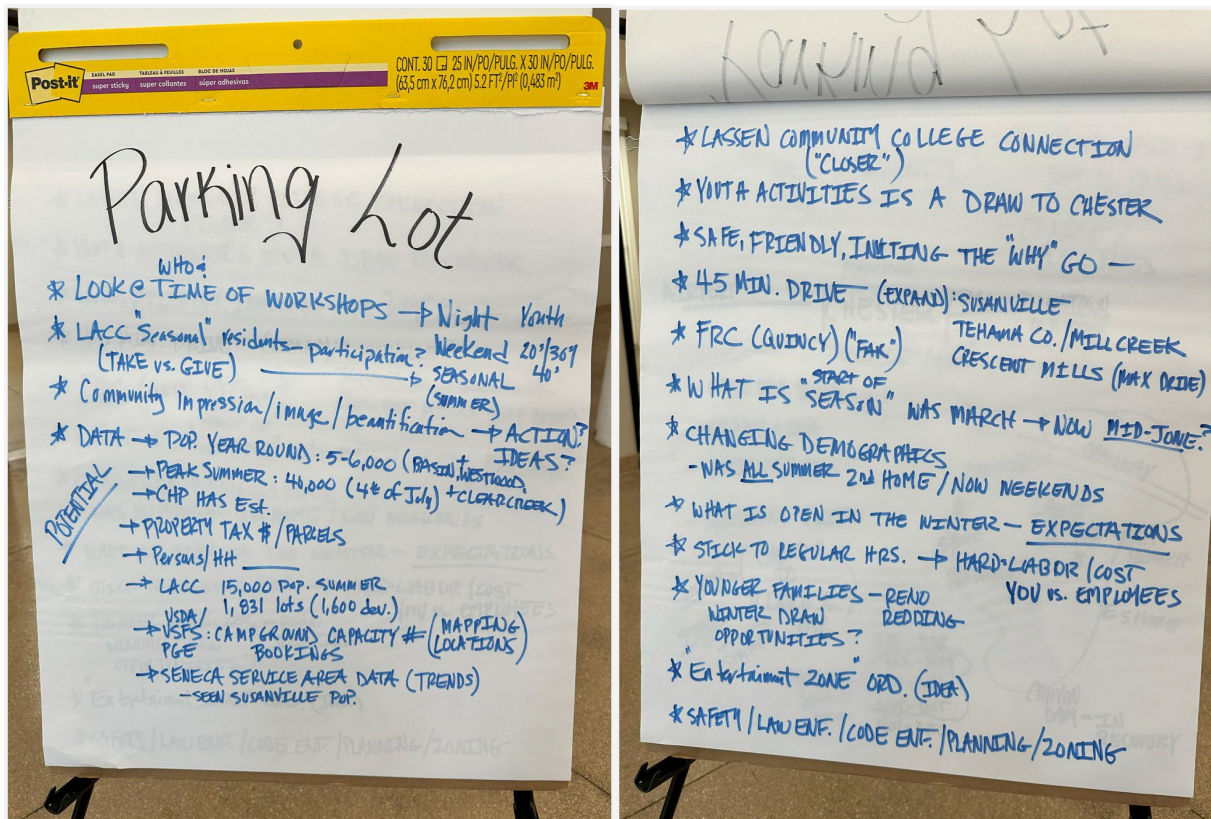 Post-it
EASEL PAD
super sticky
TABLEAU À FEUILLES
super collantes
BLOC DE HOJAS
súper adhesivas
CONT. 30 25 IN/PO/PULG. X 30 IN/PO/PULG.
(63,5 cm x 76,2 cm) 5.2 FT²/PI² (0,483 m²)
3M
Parking Lot
WHO &
* LOOK @ TIME OF WORKSHOPS → Night Youth
* LACC "Seasonal" residents - participation? Weekend 20's/30's
(TAKE vs. GIVE) → SEASONAL 40's
(SUMMER)
* Community Impression/image/beautification → ACTION?
+ IDEAS?
* DATA → POP. YEAR ROUND: 5-6,000 (BASIN, WESTWOOD,
POTENTIAL
→ PEAK SUMMER: 40,000 (4th of July) + CLEAR CREEK)
→ CHP HAS Est.
→ PROPERTY TAX #/PARCELS
→ Persons/HH
→ LACC 15,000 POP. SUMMER
1,831 lots (1,600 dev.)
USDA/
→ USFS: CAMPGROUND CAPACITY # (MAPPING
PGE BOOKINGS LOCATIONS)
→ SENECA SERVICE AREA DATA (TRENDS)
- SEEN SUSANVILLE POP.
Parking Lot
* LASSEN COMMUNITY COLLEGE CONNECTION
("CLOSER")
* YOUTH ACTIVITIES IS A DRAW TO CHESTER
* SAFE, FRIENDLY, INVITING THE "WHY" GO —
* 45 MIN. DRIVE — (EXPAND): SUSANVILLE
TEHAMA CO./MILL CREEK
* FRC (QUINCY) ("FAR")
CRESCENT MILLS (MAX DRIVE)
* WHAT IS "START OF SEASON" WAS MARCH → NOW MID-JUNE?
* CHANGING DEMOGRAPHICS
- WAS ALL SUMMER 2nd HOME / NOW WEEKENDS
* WHAT IS OPEN IN THE WINTER — EXPECTATIONS
* STICK TO REGULAR HRS. → HARD-LABOR/COST
YOU vs. EMPLOYEES
* YOUNGER FAMILIES — RENO
WINTER DRAW REDDING
OPPORTUNITIES?
* "Entertainment ZONE" ORD. (IDEA)
* SAFETY/LAW ENF./CODE ENF./PLANNING/ZONING